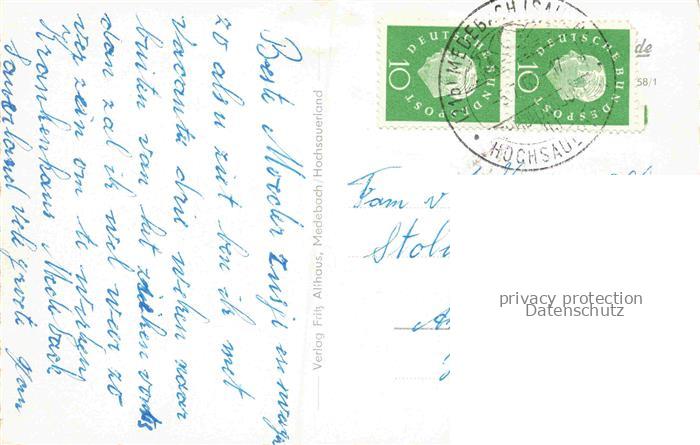 Beste Moeder Zusje en zwager
zo als u ziet ben ik met
vacantie drie weken naar
buiten van het zieken vonts
dan zal ik wel weer zo
ver zein om te werken
Krankenhaus Medebach
Sauerland vele groete van
Verlag Fritz Allhaus, Medebach/Hochsauerland
DEUTSCHE BUNDESPOST
10
DEUTSCHE BUNDESPOST
10
MEDEBACH (SAUERL
HOCHSAUERL
de
58/1
Fam v
Stol
privacy protection
Datenschutz